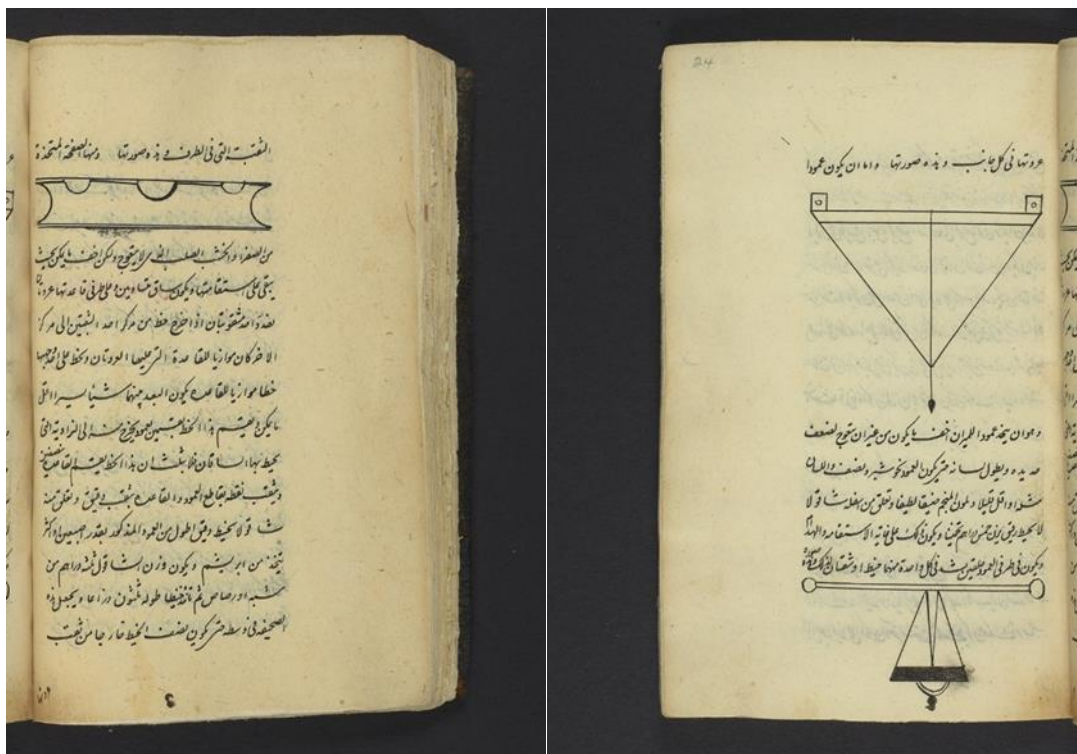 الثقبة التى فى الطرف وهذه صورتها ومنها الصفحة المتخذة
من الصفر او الخشب الصلب الذى لا يتعوج ولكن اخف ما يكن بحيث
يبقى على استقامتها ويكون ساق متساويين وعلى طرفى قاعدتها عروتان
بعد واحد مثقوبتان اذا اخرج خط من مركز احد الثقبتين الى مركز
الاخر كان موازيا للقاعدة التى عليها العروتان وخط على احد وجهيها
خطا موازيا للقاعده يكون البعد بينهما شيئا يسيرا اقل
ما يكن ويقسم هذا الخط بقسمين العمود يخرج منه الى الزاوية التى
يحيط بها الساقان فلا شك ان هذا الخط يقسم القاعدة بنصفين
ويثقب نقطة تقاطع العمود والقاعده بثقب دقيق ويعلق منه
شاقولا بخيط دقيق اطول من العمود المذكور بقدر اصبعين او اكثر
يتخذ من ابريشم ويكون وزن الشاقول ثلثة دراهم من
شبه او رصاص ثم تاخذ خيطا طوله ثلثون ذراعا ويجعل هذه
الصحيفه فى وسطه حتى يكون نصف الخيط خارجا من ثقب
24
عروتها فى كل جانب وهذه صورتها واما ان يكون عمودا
وهو ان تتخذ عمودا للميزان اخف ما يكون من غير ان يتعوج لضعف
حديده ويطول لسانه حتى يكون العمود نحو شبر ونصف واللسان
او اقل قليلا ويكون المنجم ضيقا لطيفا وتعلق من سفله شاقولا
بخيط دقيق يزن خمس دراهم تخمينا ويكون ذلك على غاية الاستقامه
ويكون فى طرفى العمود حلقتين يشد فى كل واحدة منهما خيط